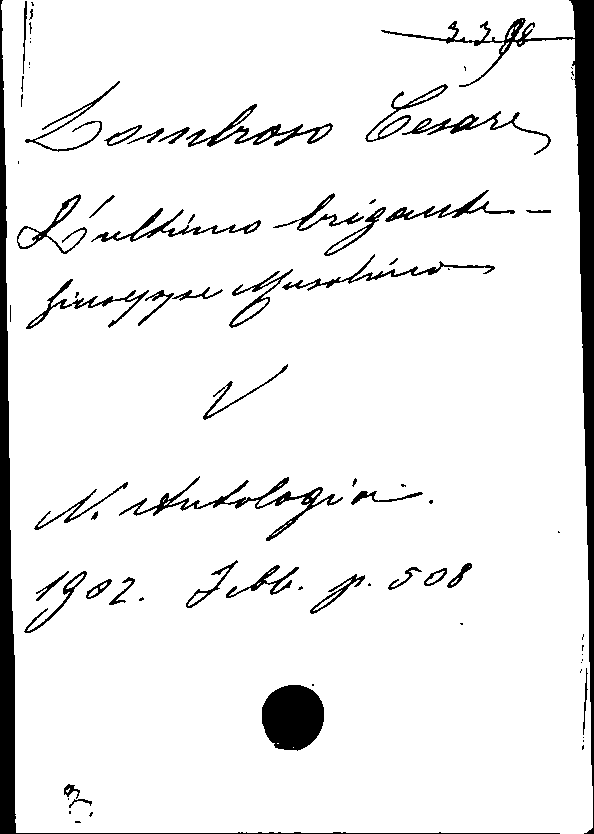 3.3.98
Lombroso Cesare
L'ultimo brigante -
Giuseppe Musolino
V
N. Antologia.
1902. Febb. p. 508